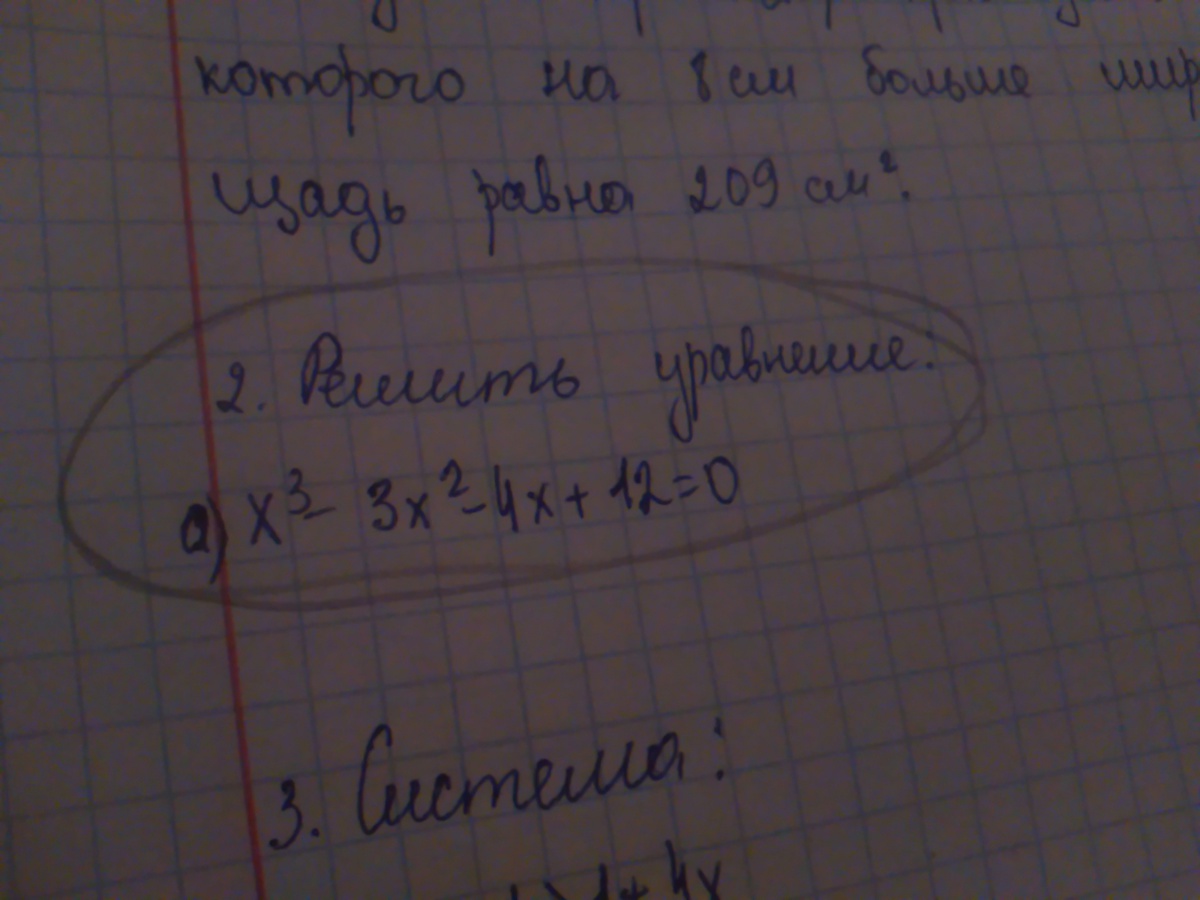 которого на 8 см больше шир
щадь равна 209 см².
2. Решить уравнение:
а) x³ - 3x² - 4x + 12 = 0
3. Система: